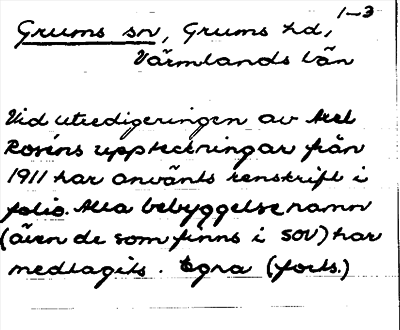 1-3
Grums sn, Grums hd,
Värmlands län
Vid utredigeringen av Axel
Roséns uppteckningar från
1911 har använts renskrift i
folio. Alla bebyggelsenamn
(även de som finns i SOV) har
medtagits. Egna (forts.)